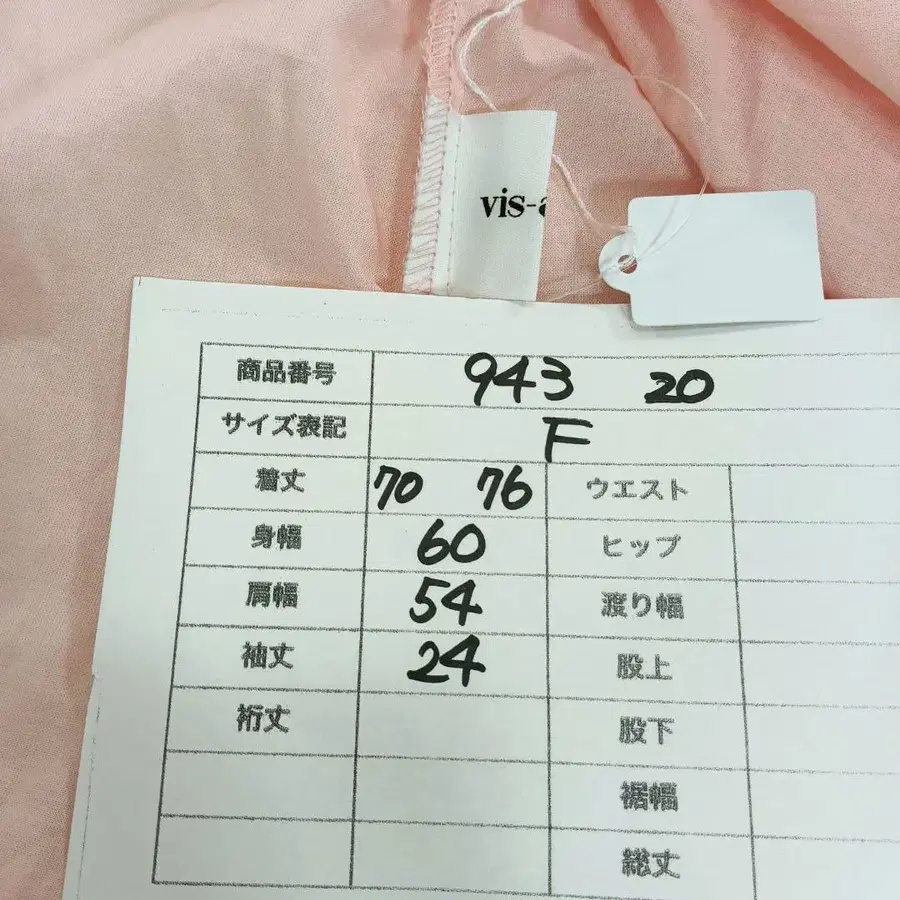 vis-a
商品番号 943 20
サイズ表記 F
着丈 70 76 ウエスト
身幅 60 ヒップ
肩幅 54 渡り幅
袖丈 24 股上
裄丈 股下
裾幅
総丈